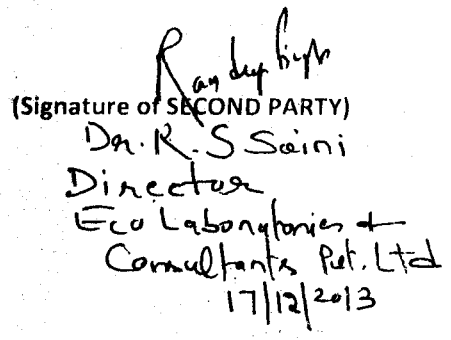 Randeep Singh
(Signature of SECOND PARTY)
Dr. R. S Saini
Director
Eco Laboratories &
Consultants Pvt. Ltd
17/12/2013